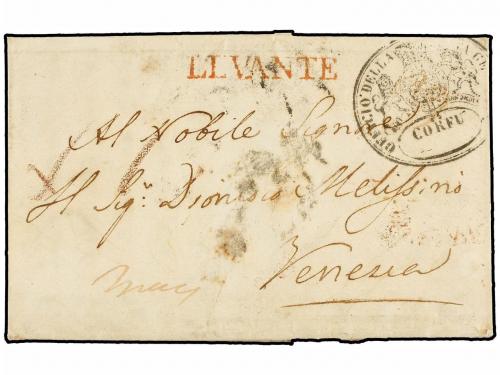 LEVANTE
UFFICIO DELLA
CORFU
Al Nobile Signore
Il Sigr. Dionisio Melissino
Venezia